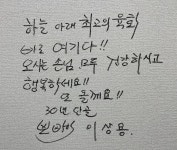 하늘 아래 최고의 육회
바로 여기다!!
오시는 손님 모두 건강하시고
행복하세요!!
또 올께요!!
30년 단골
뽀빠이 이상용.